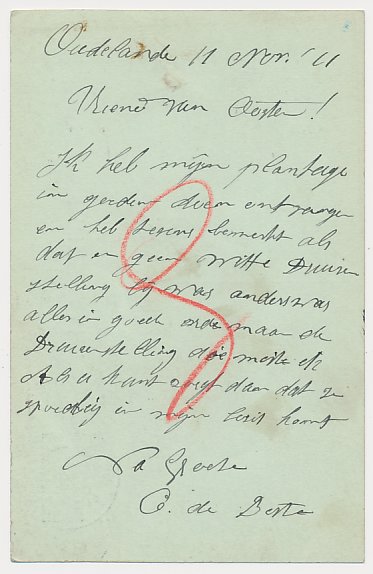 Oudelande 11 Nov. '11
Vriend van Oosten!
Ik heb mijn plantage
in goeden doen ontvangen
en heb tevens bemerkt als
dat er geen witte Druiven
stelling bij was anders was
alles in goede orde maar de
Druivenstelling die miste ik
Als u kunt zorgt daar dat ze
spoedig in mijn bezit komt
Na Groete
C. de Beste